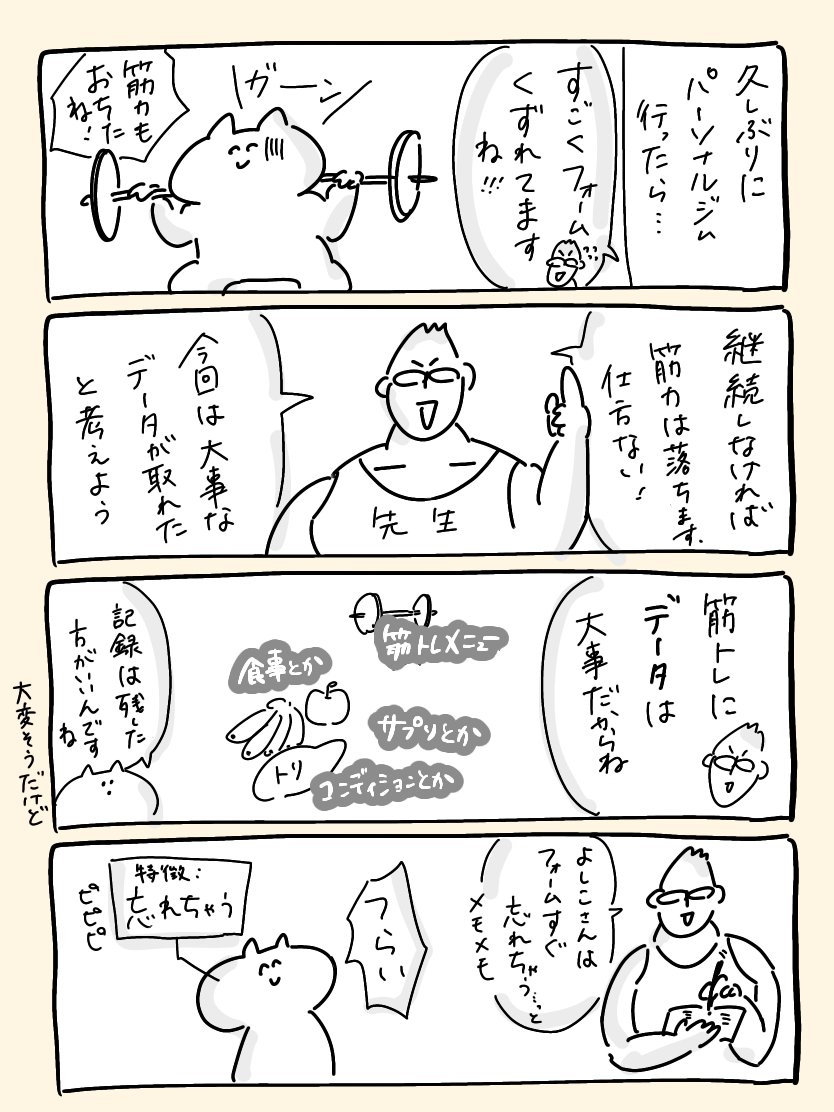 久しぶりに
パーソナルジム
行ったら…
すごくフォーム
くずれてます
ね!!!
ガーン
筋力も
おちた
ね!
継続しなければ
筋力は落ちます
仕方ない!
先生
今回は大事な
データが取れた
と考えよう
筋トレに
データは
大事だからね
筋トレメニュー
食事とか
サプリとか
トリ
コンディションとか
記録は残した
方がいいんです
ね
大変そうだけど
よしこさんは
フォームすぐ
忘れちゃう…っと
メモメモ
つらい
特徴:
忘れちゃう
ピピピ